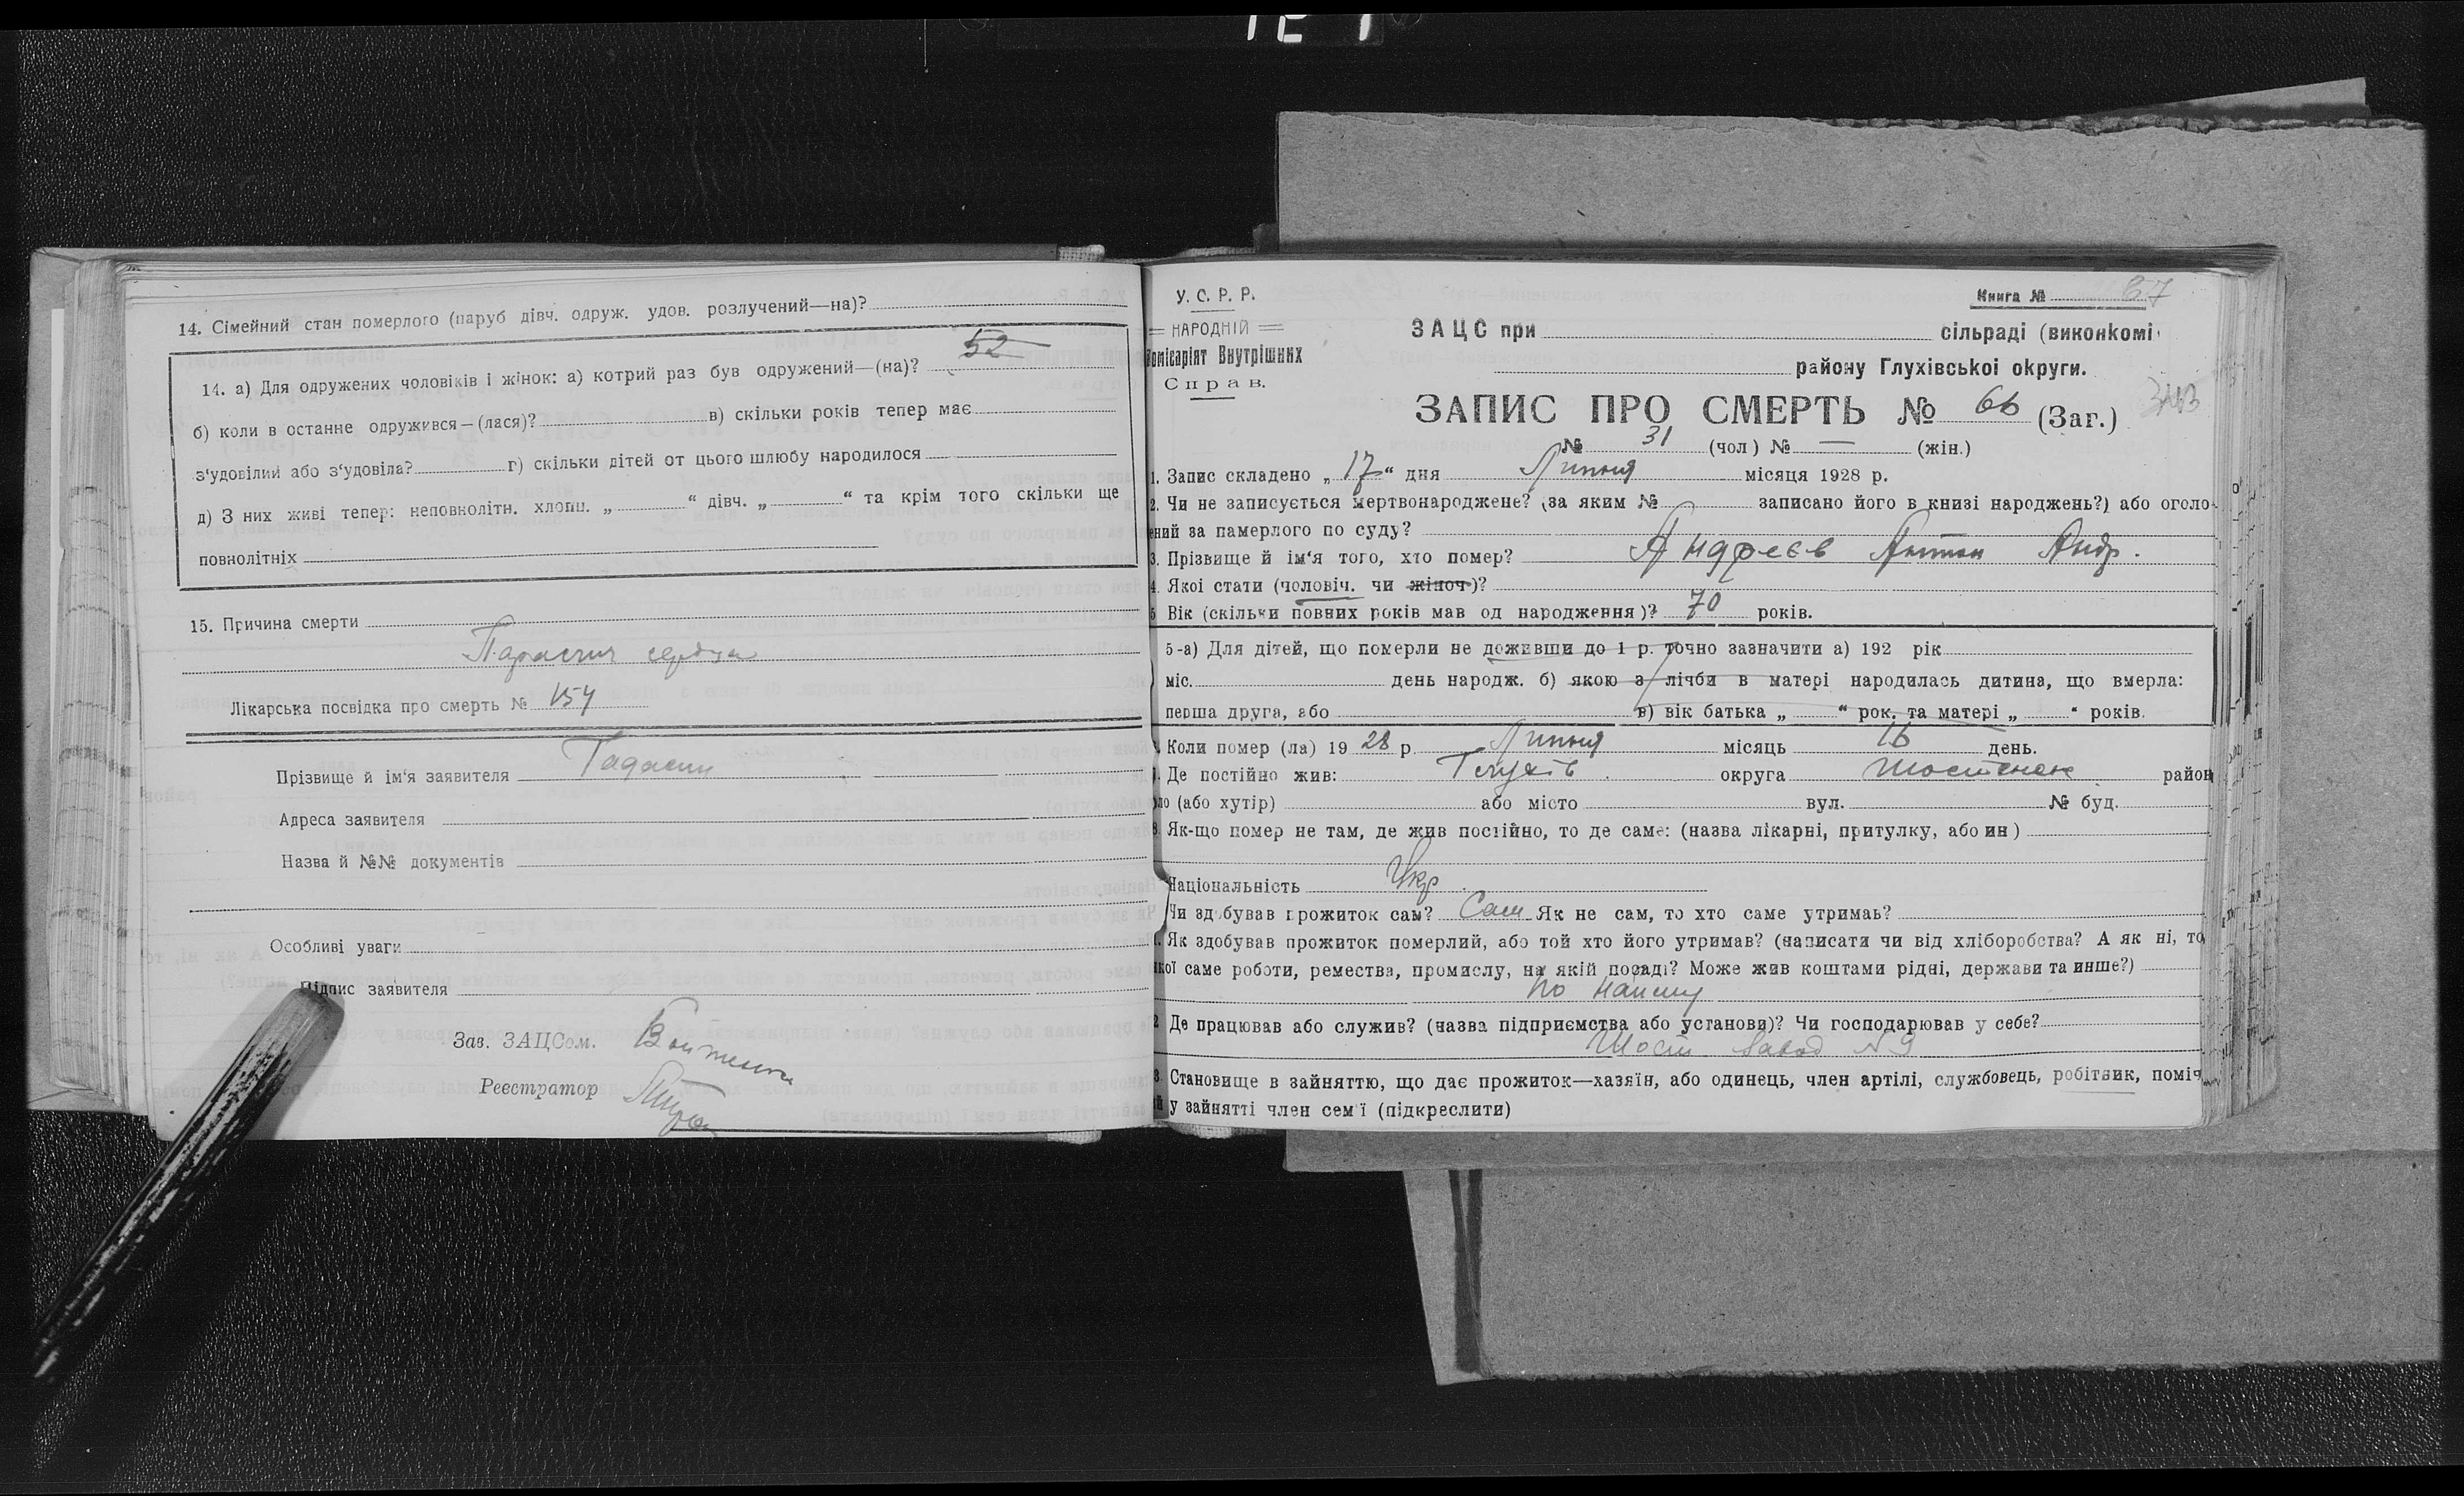 14. Сімейний стан померлого (паруб дівч. одруж. удов. розлучений—на)?
14. а) Для одружених чоловіків і жінок: а) котрий раз був одружений—(на)? 52
б) коли в останне одружився—(лася)? в) скільки років тепер має
з‘удовілий або з‘удовіла? г) скільки дітей от цього шлюбу народилося
д) З них живі тепер: неповнолітн. хлопц. „ “ дівч. „ “ та крім того скільки ще
повнолітніх
15. Причина смерти
Параліч сердца
Лікарська посвідка про смерть № 154
Прізвище й ім‘я заявителя
Адреса заявителя
Назва й №№ документів
Особливі уваги
Підпис заявителя
Зав. ЗАЦСом.
Реєстратор
У. С. Р. Р.
НАРОДНІЙ
Комісаріят Внутрішних
Справ.
Книга № 67
ЗАЦС при сільраді (виконкомі
району Глухівської округи.
ЗАПИС ПРО СМЕРТЬ № 66 (Заг.)
№ 31 (чол) № — (жін.)
1. Запис складено „17“ дня Липня місяця 1928 р.
2. Чи не записується мертвонароджене? (за яким № записано його в книзі народжень?) або оголо-
ений за памерлого по суду?
3. Прізвище й ім‘я того, хто помер? Андреєв Антон Андр.
4. Якої стати (чоловіч. чи жіноч)?
5 Вік (скільки повних років мав од народження)? 70 років.
5-а) Для дітей, що померли не доживши до 1 р. точно зазначити а) 192 рік
міс. день народж. б) якою з лічби в матері народилась дитина, що вмерла:
перша друга, або в) вік батька „ “ рок. та матері „ “ років.
Коли помер (ла) 1928 р. Липня місяць 16 день.
Де постійно жив: Глухів округа Шостенск район
ло (або хутір) або місто вул. № буд.
Як-що помер не там, де жив постійно, то де саме: (назва лікарні, притулку, або ин)
Національність Укр.
Чи здобував прожиток сам? Сам Як не сам, то хто саме утримаь?
Як здобував прожиток померлий, або той хто його утримав? (написати чи від хліборобства? А як ні, то
кої саме роботи, ремества, промислу, на якій посаді? Може жив коштами рідні, держави та инше?)
по найму
2 Де працював або служив? (назва підприємства або установи)? Чи господарював у себе?
Шост. Завод №9
3. Становище в зайняттю, що дає прожиток—хазяїн, або одинець, член артілі, службовець, робітник, поміч
й у зайнятті член сем‘ї (підкреслити)